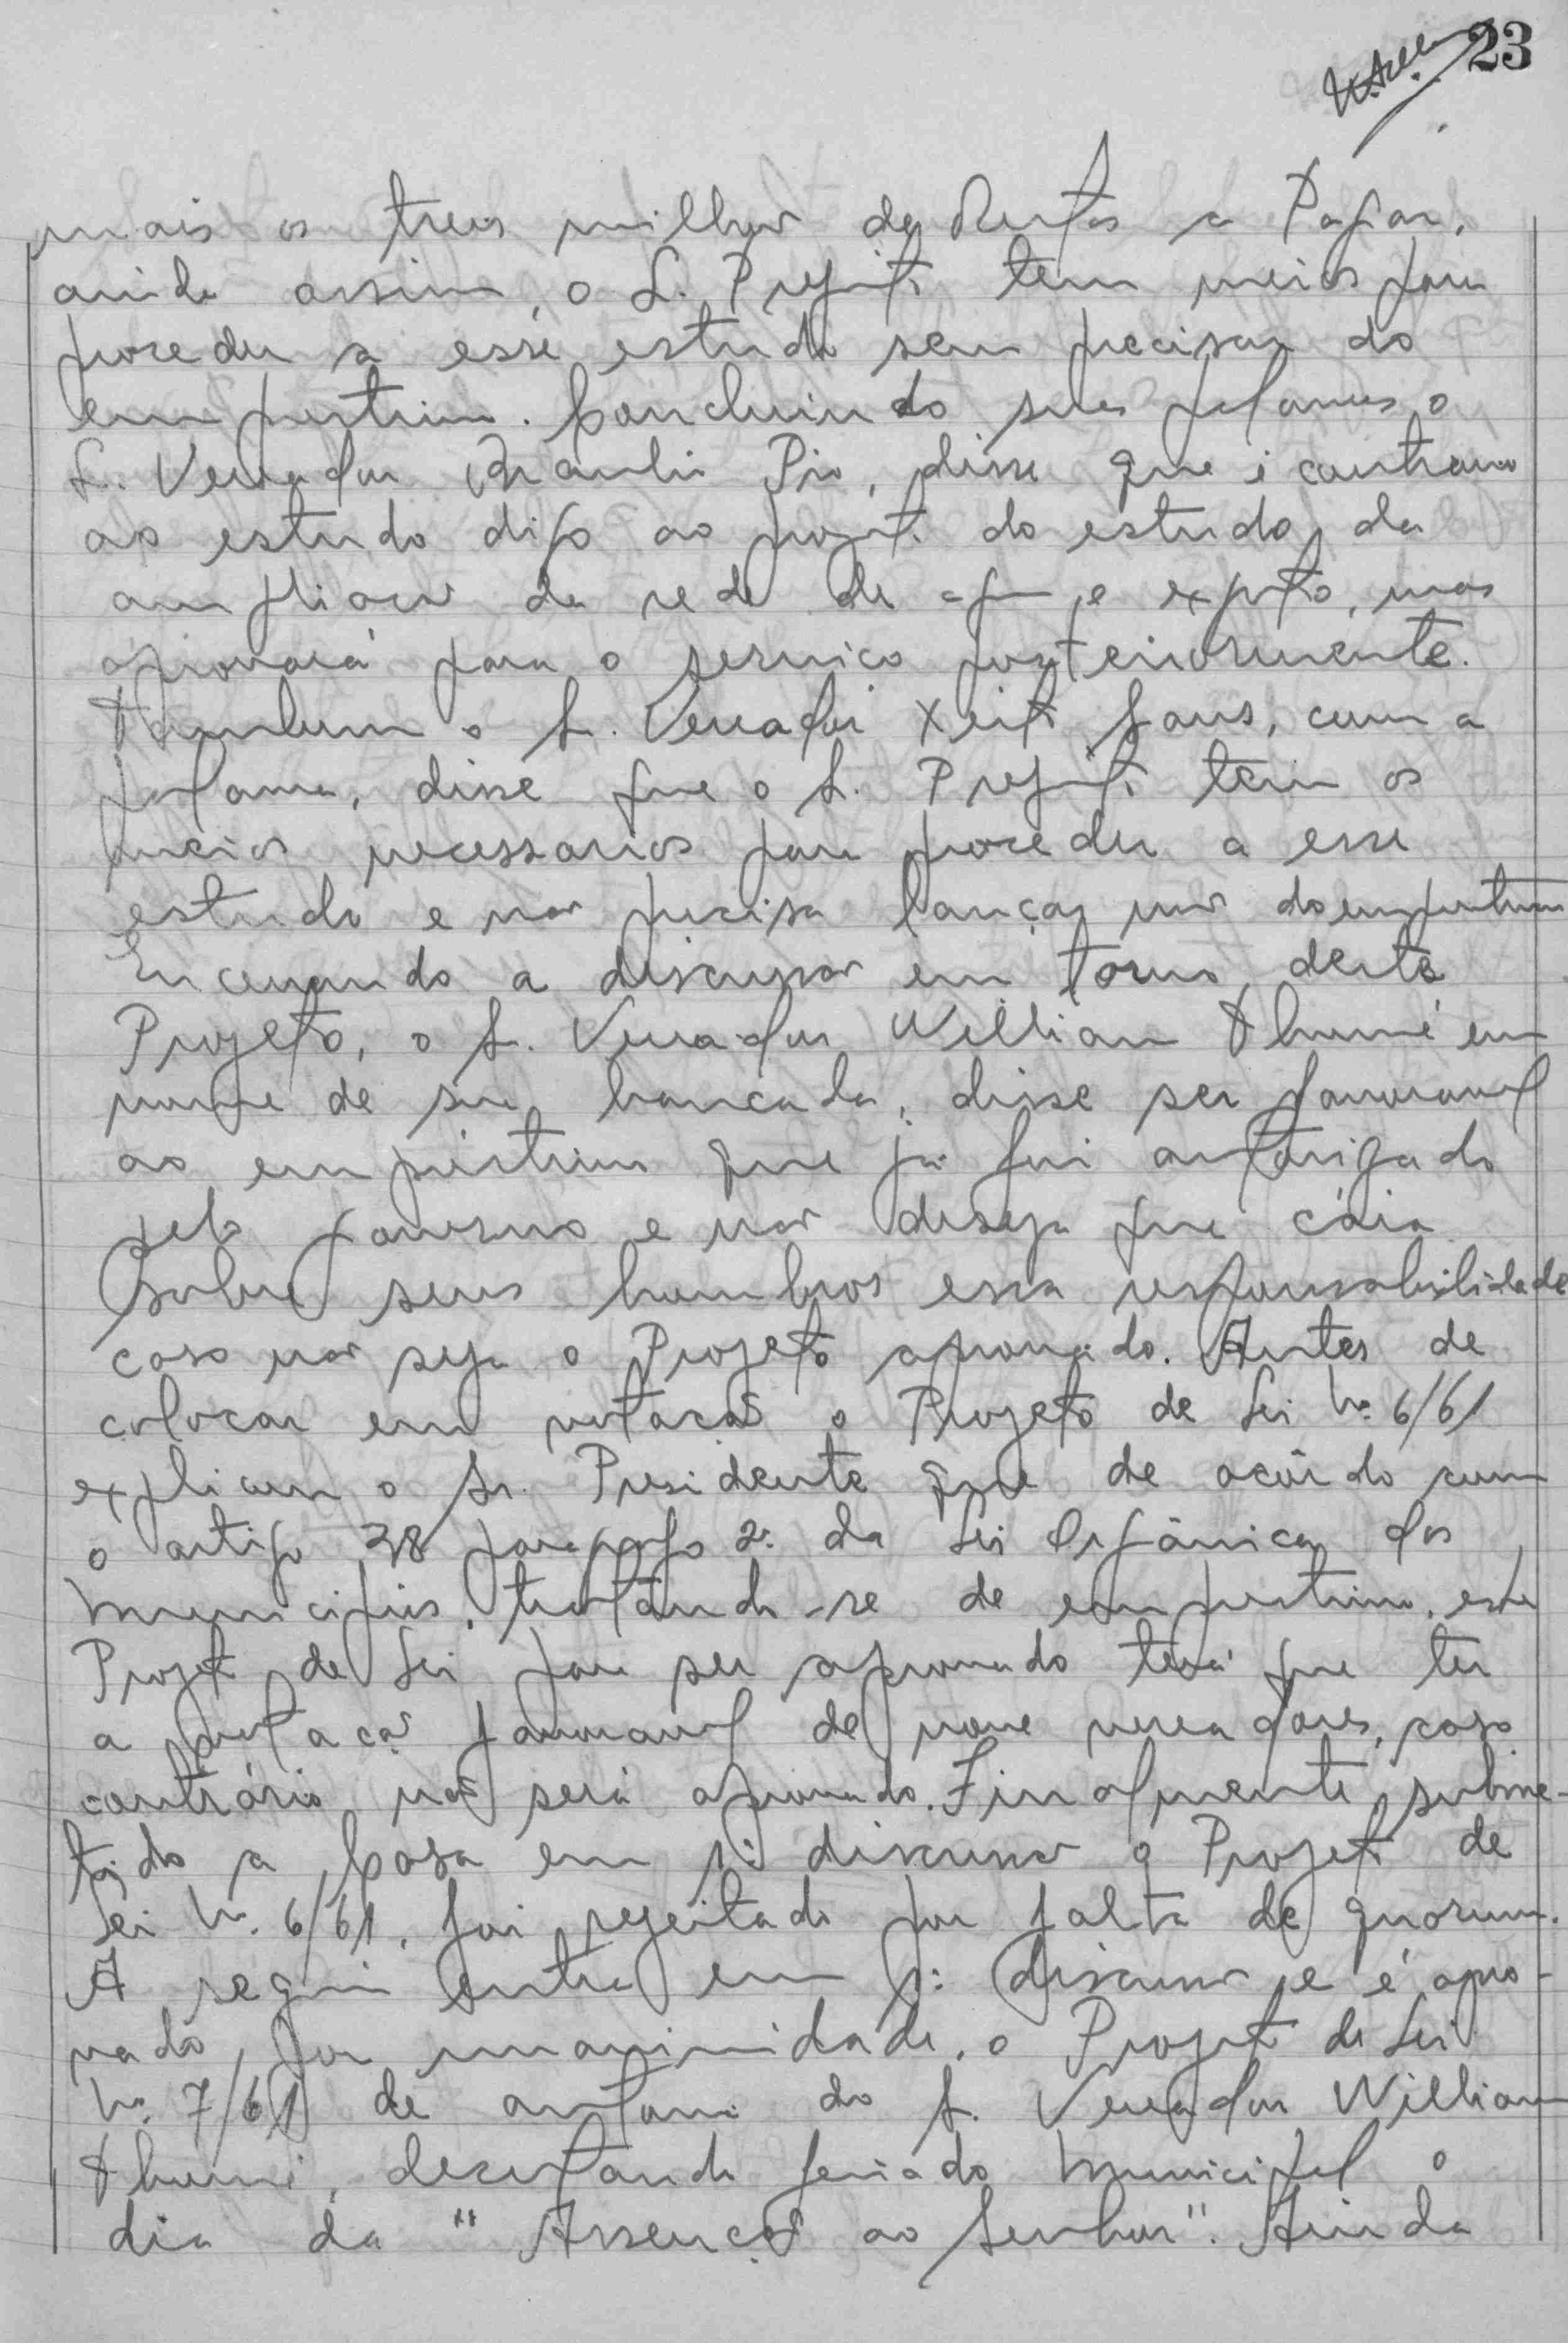 23
mais os tres milhões de Restos a Pagar,
ainda assim, o S. Prefeito tem meios para
proceder a esse estudo sem precisar do
emprestimo. Concluindo suas palavras o
S. Vereador Braulio Pio, disse que é contrario
ao estudo digo ao projeto do estudo da
ampliação da rede de agua e esgoto, mas
aprovará para o serviço posteriormente.
Tambem o S. Vereador Xisto, com a
palavra, disse que o S. Prefeito tem os
meios necessarios para proceder a esse
estudo e não precisa lançar mão do emprestimo
Encerrando a discussão em torno deste
Projeto, o S. Vereador Willian Thumé em
nome de sua bancada, disse ser favoravel
ao empréstimo que já foi autorizado
pelo governo e não deseja que cáia
sobre seus hombros essa responsabilidade
caso não seja o Projeto aprovado. Antes de
colocar em votacão o Projeto de Lei No. 6/61
explicou o Sr. Presidente que de acôrdo com
o artigo 38 paragrafo 2º da Lei Orgânica dos
Municipios, tratando-se de emprestimo, este
Projeto de Lei para ser aprovado terá que ter
a votação favoravel de nove vereadores, caso
contrário não será aprovado. Finalmente subme-
tido a Casa em 1ª discussão o Projeto de
Lei No. 6/61, foi rejeitado por falta de quorum.
A seguir entra em 1ª discussão e é apro-
vado por unanimidade, o Projeto de Lei
No. 7/61 de autoria do S. Vereador Willian
Thumé, decretando feriado Municipal o
dia da "Assenção ao Senhor". Ainda